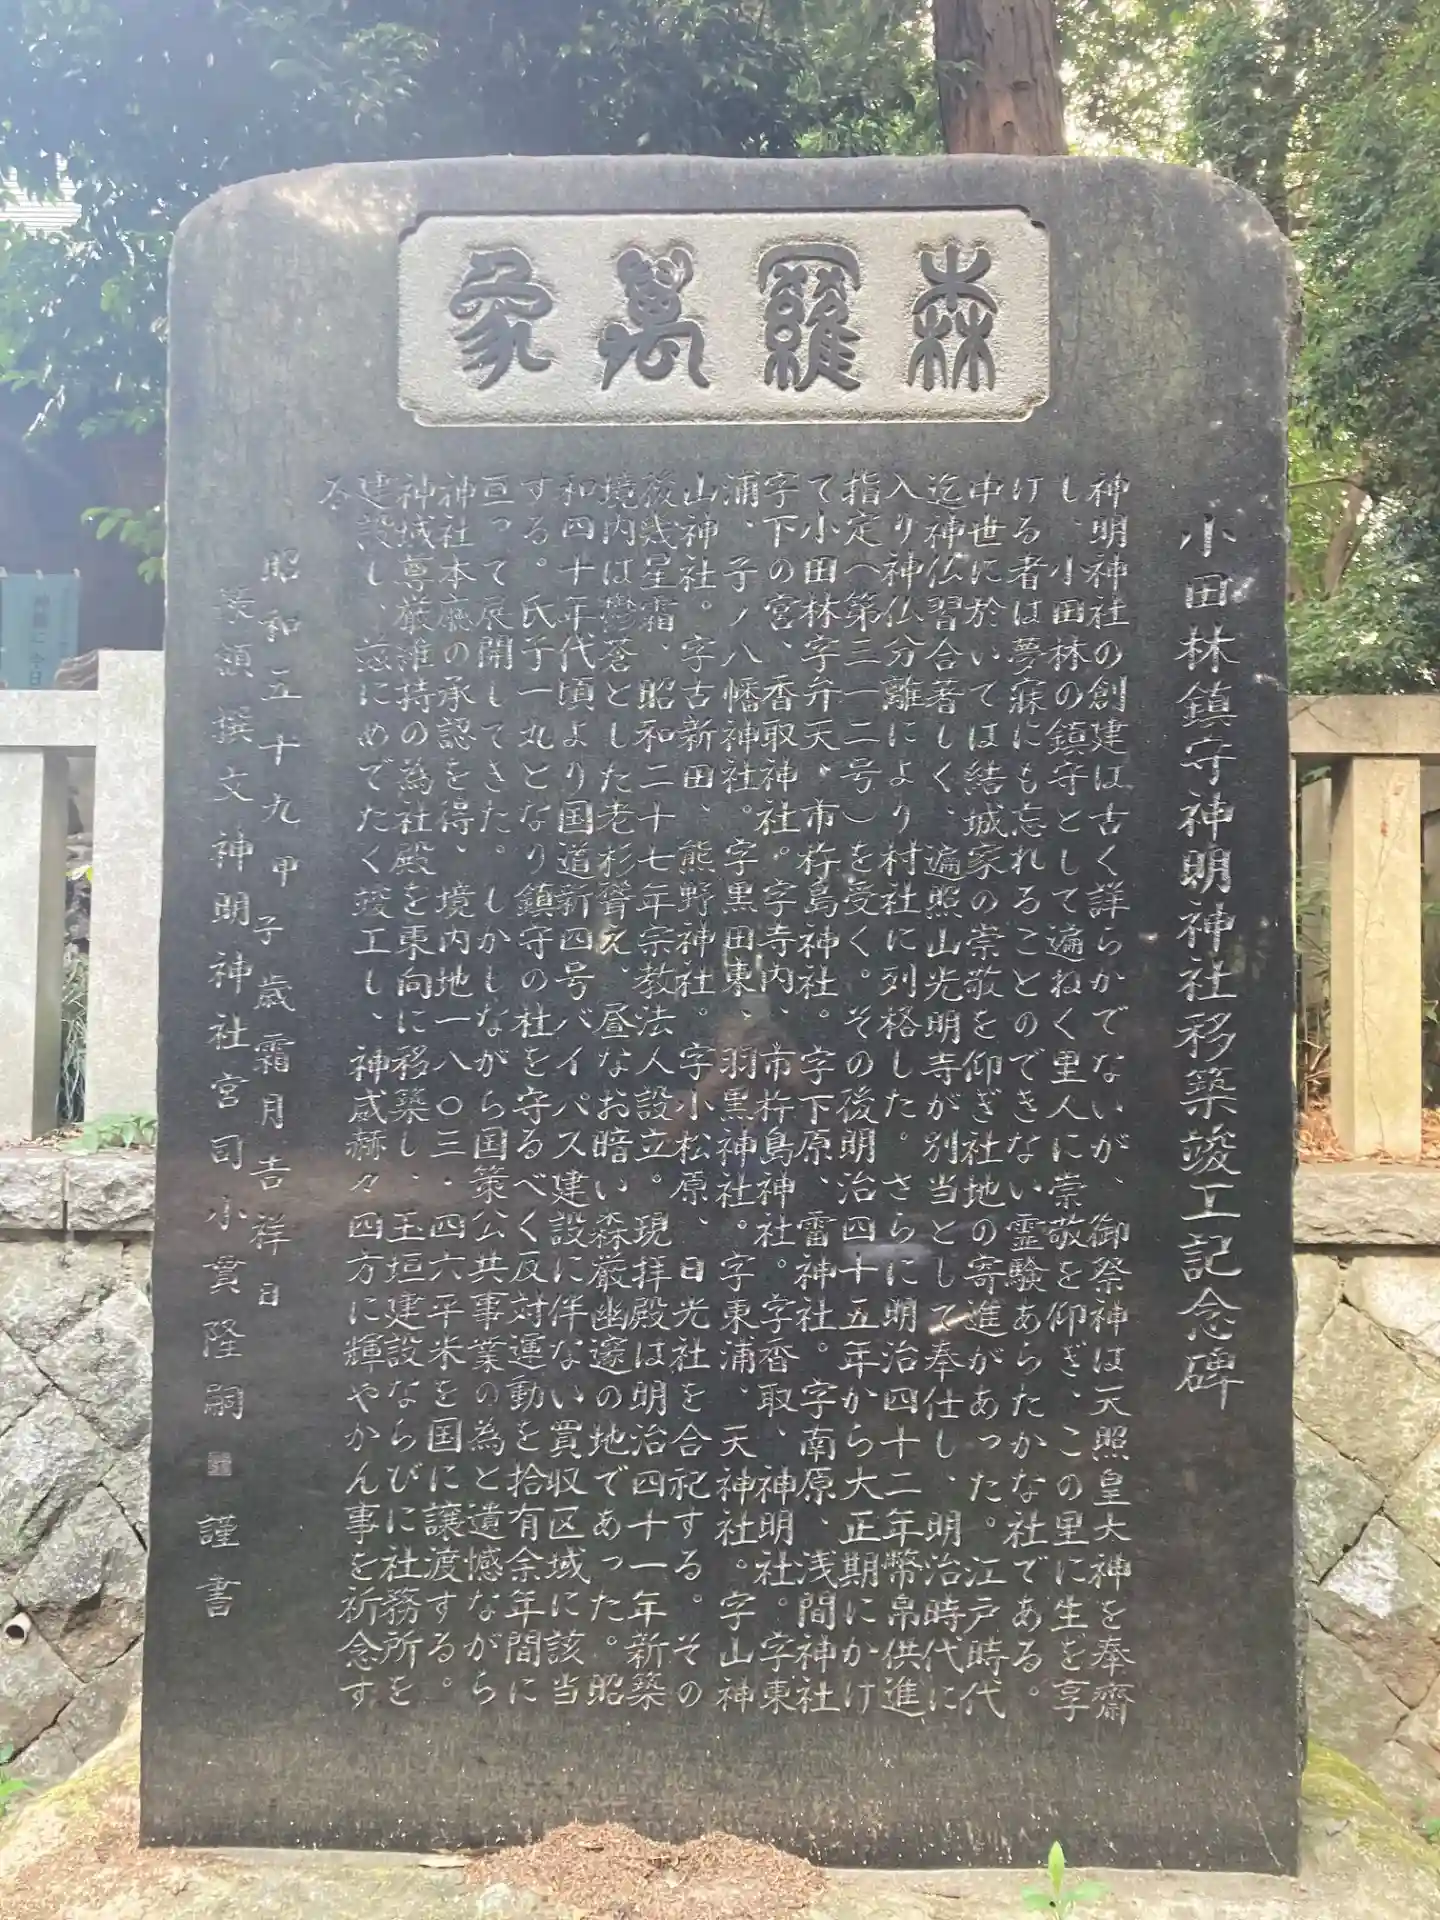 森羅萬象
小田林鎮守神明神社移築竣工記念碑
神明神社の創建は古く詳らかでないが、御祭神は天照皇大神を奉齋
し、小田林の鎮守として遍ねく里人に崇敬を仰ぎ、この里に生を享
ける者は夢寐にも忘れることのできない霊験あらたかな社である。
中世に於いては結城家の崇敬を仰ぎ社地の寄進があった。江戸時代
迄神仏習合著しく、遍照山光明寺が別当として奉仕し、明治時代に
入り神仏分離により村社に列格した。さらに明治四十二年幣帛供進
指定(第三一二号)を受く。その後明治四十五年から大正期にかけ
て小田林字弁天、市杵島神社。字下原、雷神社。字南原、浅間神社
字下の宮、香取神社。字寺内、市杵島神社。字香取、神明社。字東
浦、子ノ八幡神社。字黒田東、羽黒神社。字東浦、天神社。字山神
山神社。字古新田、熊野神社。字小松原、日光社を合祀する。その
後幾星霜、昭和二十七年宗教法人設立。現拝殿は明治四十一年新築
境内は鬱蒼とした老杉聳え、昼なお暗い森厳幽邃の地であった。昭
和四十年代頃より国道新四号バイパス建設に伴ない買収区域に該当
する。氏子一丸となり鎮守の社を守るべく反対運動を拾有余年間に
亘って展開してきた。しかしながら国策公共事業の為と遺憾ながら
神社本廳の承認を得、境内地一八〇三・四六平米を国に譲渡する。
神域尊厳維持の為社殿を東向に移築し、玉垣建設ならびに社務所を
建設し、茲にめでたく竣工し、神威赫々四方に輝やかん事を祈念す
る
昭和五十九甲子歳霜月吉祥日
篆額撰文神明神社宮司小貫隆嗣 謹書